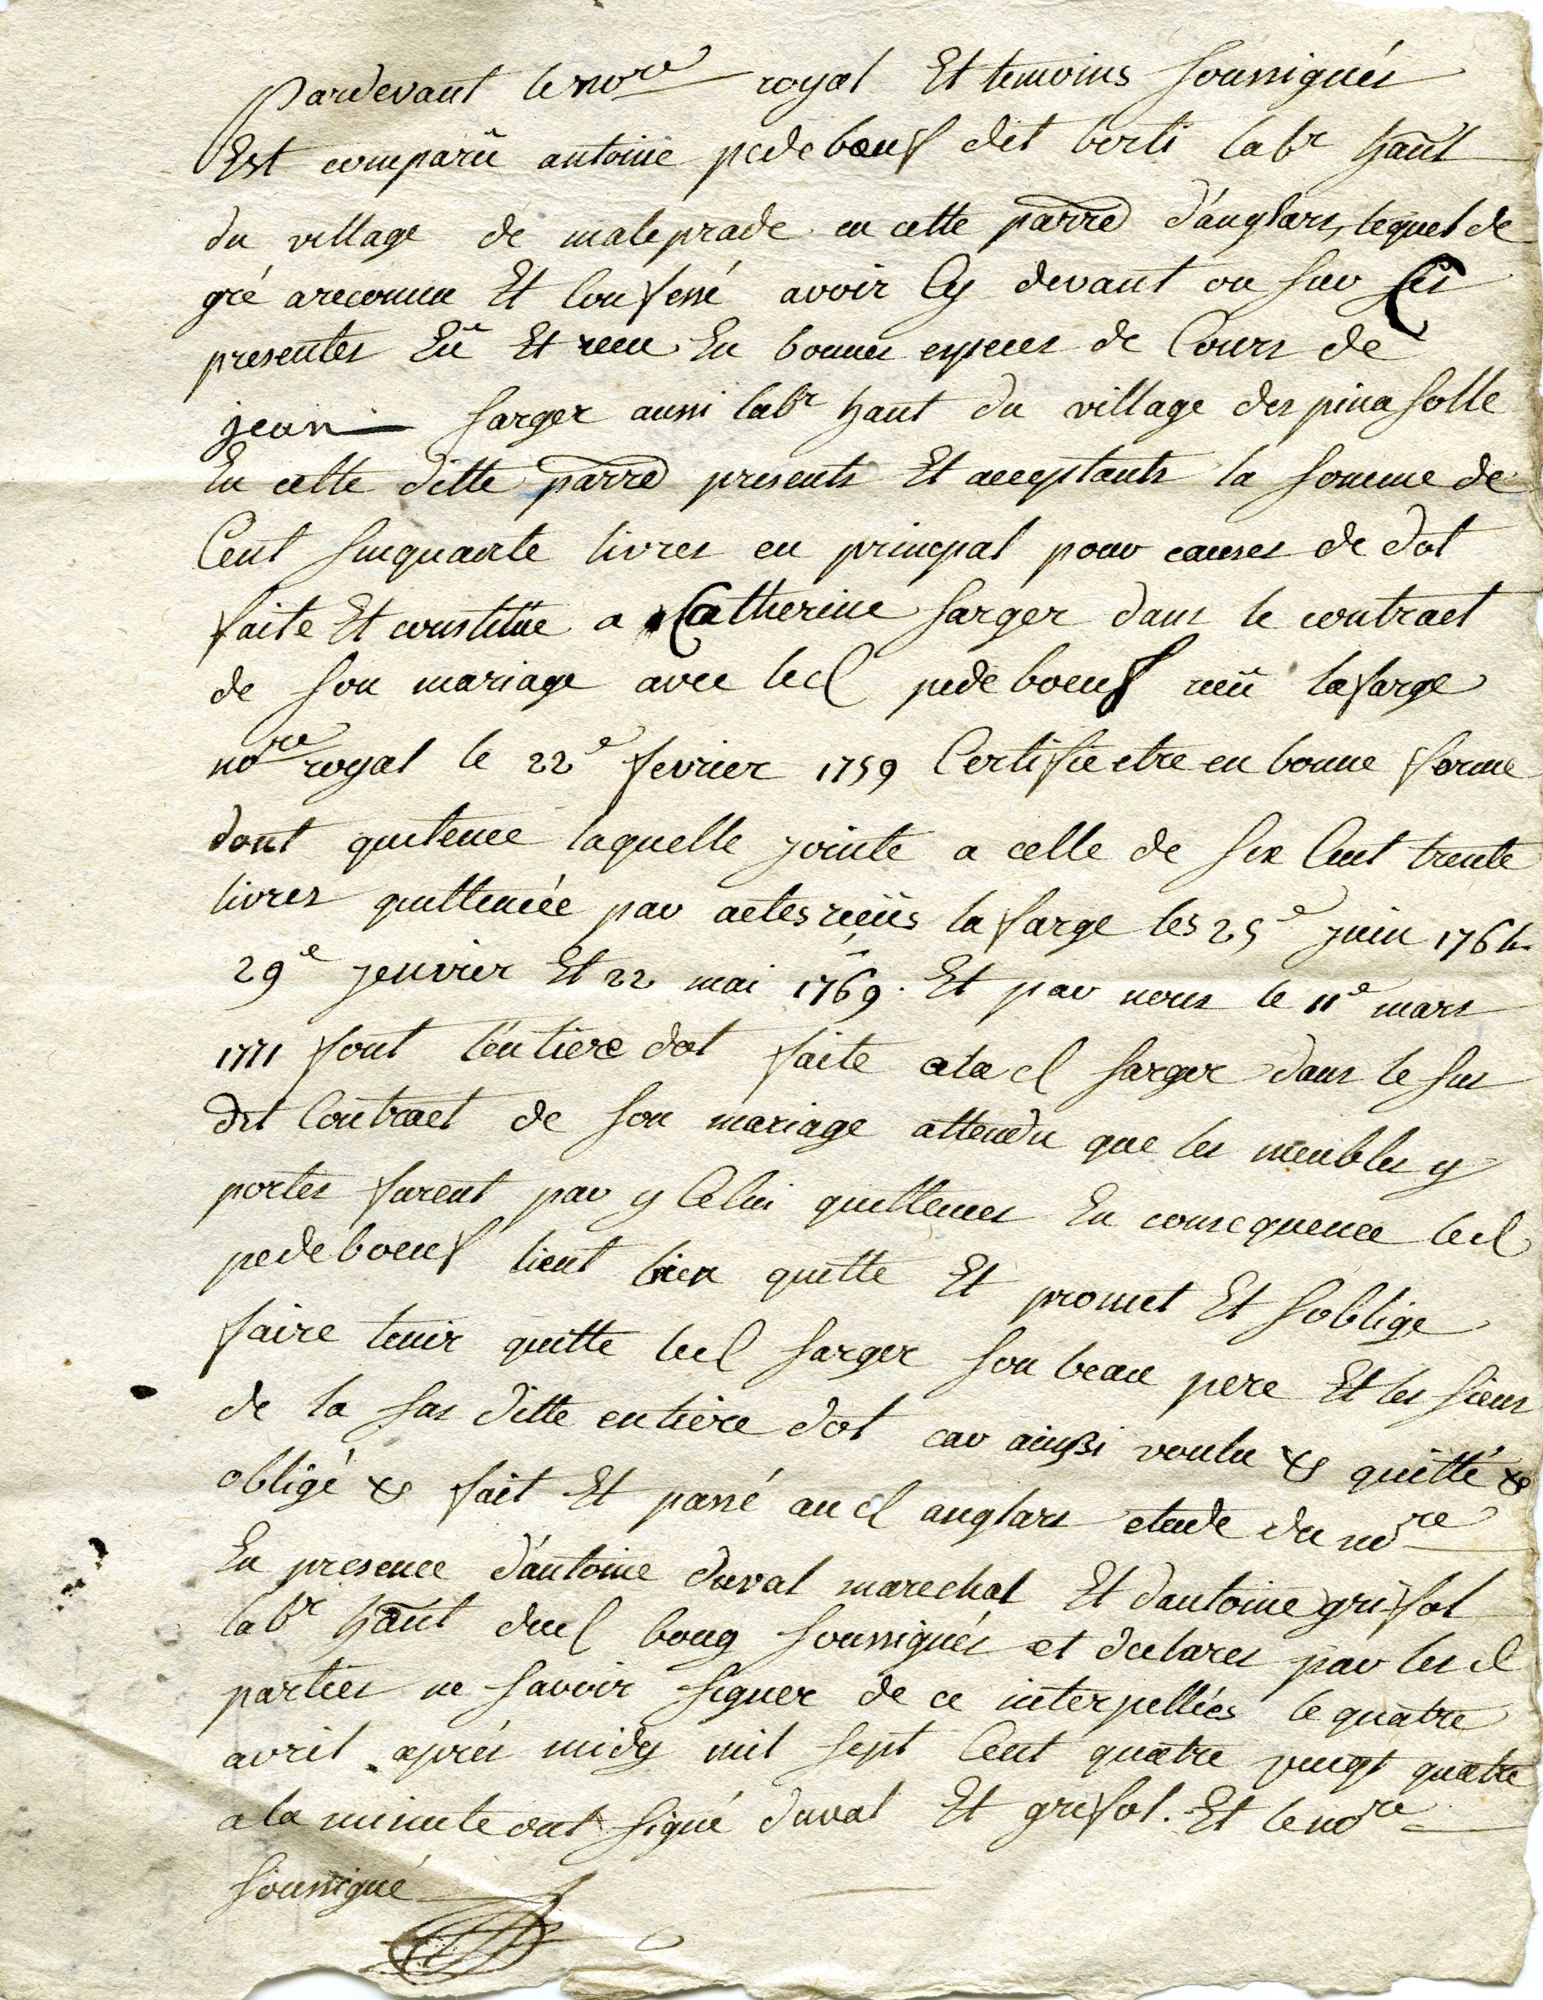 Pardevant le nore royal Et temoins soussignés
Est comparû antoine pedebœuf dit borti labr haut
du village de maleprade en cette parre d'anglars, lequel de
gré areconnu Et Confessé avoir Cy devant ou sur ses
presentes Eû Et receu En bonnes especes de Cours de
jean sarger aussi labr haut du village despinasolle
En cette ditte parre presents Et acceptants la somme de
Cent sinquante livres en principal pour causes de dot
faite Et constitüe a Catherine sarger dans le contract
de son mariage avec led pedeboeuf receû lafarge
nore royal le 22e fevrier 1759 Certifie etre en bonne forme
dont quitence laquelle jointe a celle de six Cent trente
livres quittencée par actes reçus lafarge les 25e juin 1764
29e jenvier Et 22 mai 1769. Et par nous le 11e mars
1771 font l'entiere dot faite a la d sarger dans le sus
dit Contract de son mariage attendu que les meubles y
portes furent par y Celui quittences En consequence led
pedeboeuf tient bien quitte Et promet Et soblige
faire tenir quitte led sarger son beau pere Et les siens
de la sus ditte entiere dot car ainssi voulu & quitté &
obligé & fait Et passé aud anglars etude du nore
En presence d'antoine duval marechal Et dantoine grifol
labr haut dud bourg soussignés et declares par les d
parties ne savoir signer de ce interpellées le quatre
avril après midy mil sept Cent quatre vingt quatre
a la minute ont signé duval Et grifol. Et le nore
soussigné